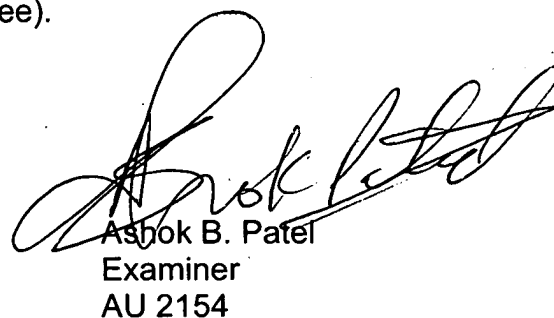 ee).
Ashok Patel
Ashok B. Patel
Examiner
AU 2154